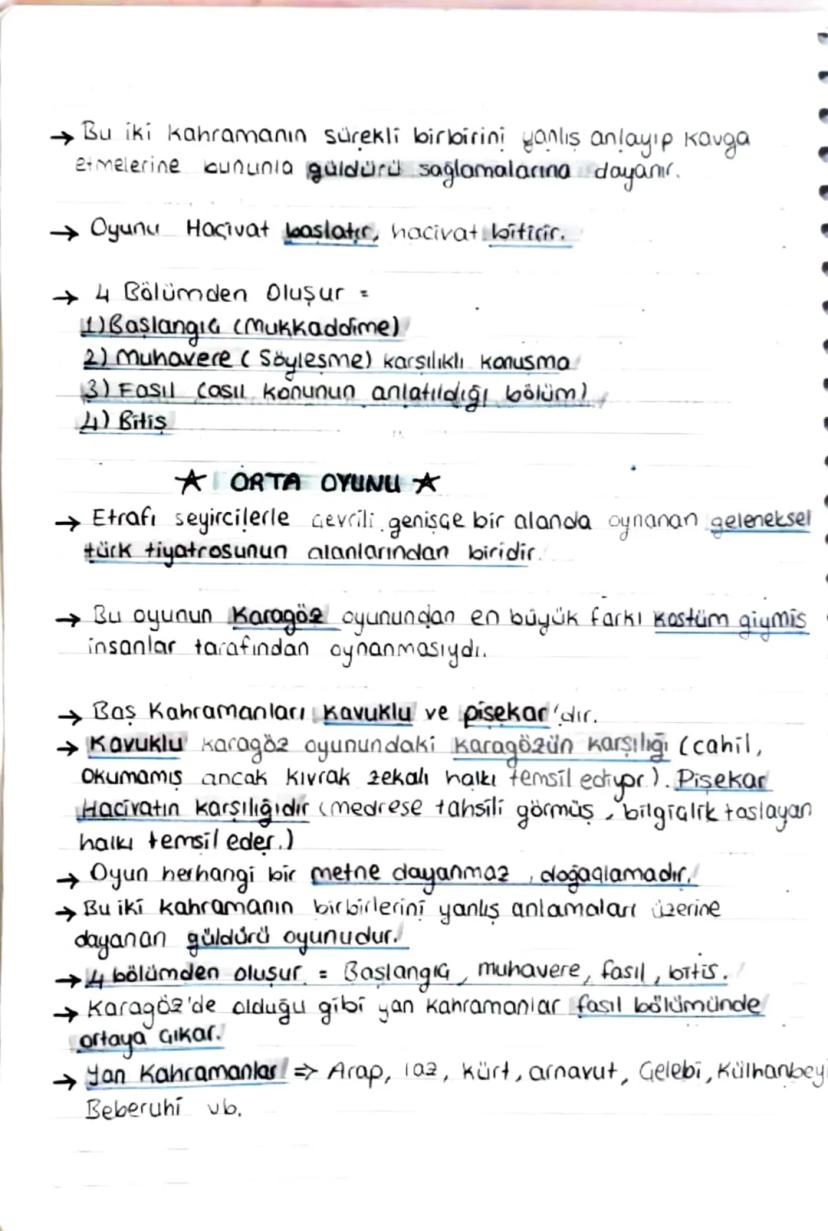 → Bu iki kahramanın sürekli birbirini yanlış anlayıp kavga
etmelerine bununla güldürü sağlamalarına dayanır.
→ Oyunu Hacivat başlatır, hacivat bitirir.
→ 4 Bölümden Oluşur =
1) Başlangıç (Mukkaddime)
2) Muhavere ( Söyleşme) karşılıklı konuşma
3) Fasıl (asıl konunun anlatıldığı bölüm)
4) Bitiş
★ ORTA OYUNU ★
→ Etrafı seyircilerle çevrili genişçe bir alanda oynanan geleneksel
türk tiyatrosunun alanlarından biridir.
→ Bu oyunun Karagöz oyunundan en büyük farkı kostüm giymiş
insanlar tarafından oynanmasıydı.
→ Baş Kahramanları Kavuklu ve pişekar'dır.
→ Kavuklu karagöz oyunundaki karagözün karşılığı (cahil,
okumamış ancak kıvrak zekalı halkı temsil ediyor.). Pişekar
Hacivatın karşılığıdır (medrese tahsili görmüş, bilgiçlik taslayan
halkı temsil eder.)
→ Oyun herhangi bir metne dayanmaz, doğaçlamadır.
→ Bu iki kahramanın birbirlerini yanlış anlamaları üzerine
dayanan güldürü oyunudur.
→ 4 bölümden oluşur = Başlangıç, muhavere, fasıl, bitiş.
→ Karagöz'de olduğu gibi yan kahramanlar fasıl bölümünde
ortaya çıkar.
→ Yan Kahramanlar ⇒ Arap, laz, kürt, arnavut, Çelebi, Külhanbeyi
Beberuhi vb.